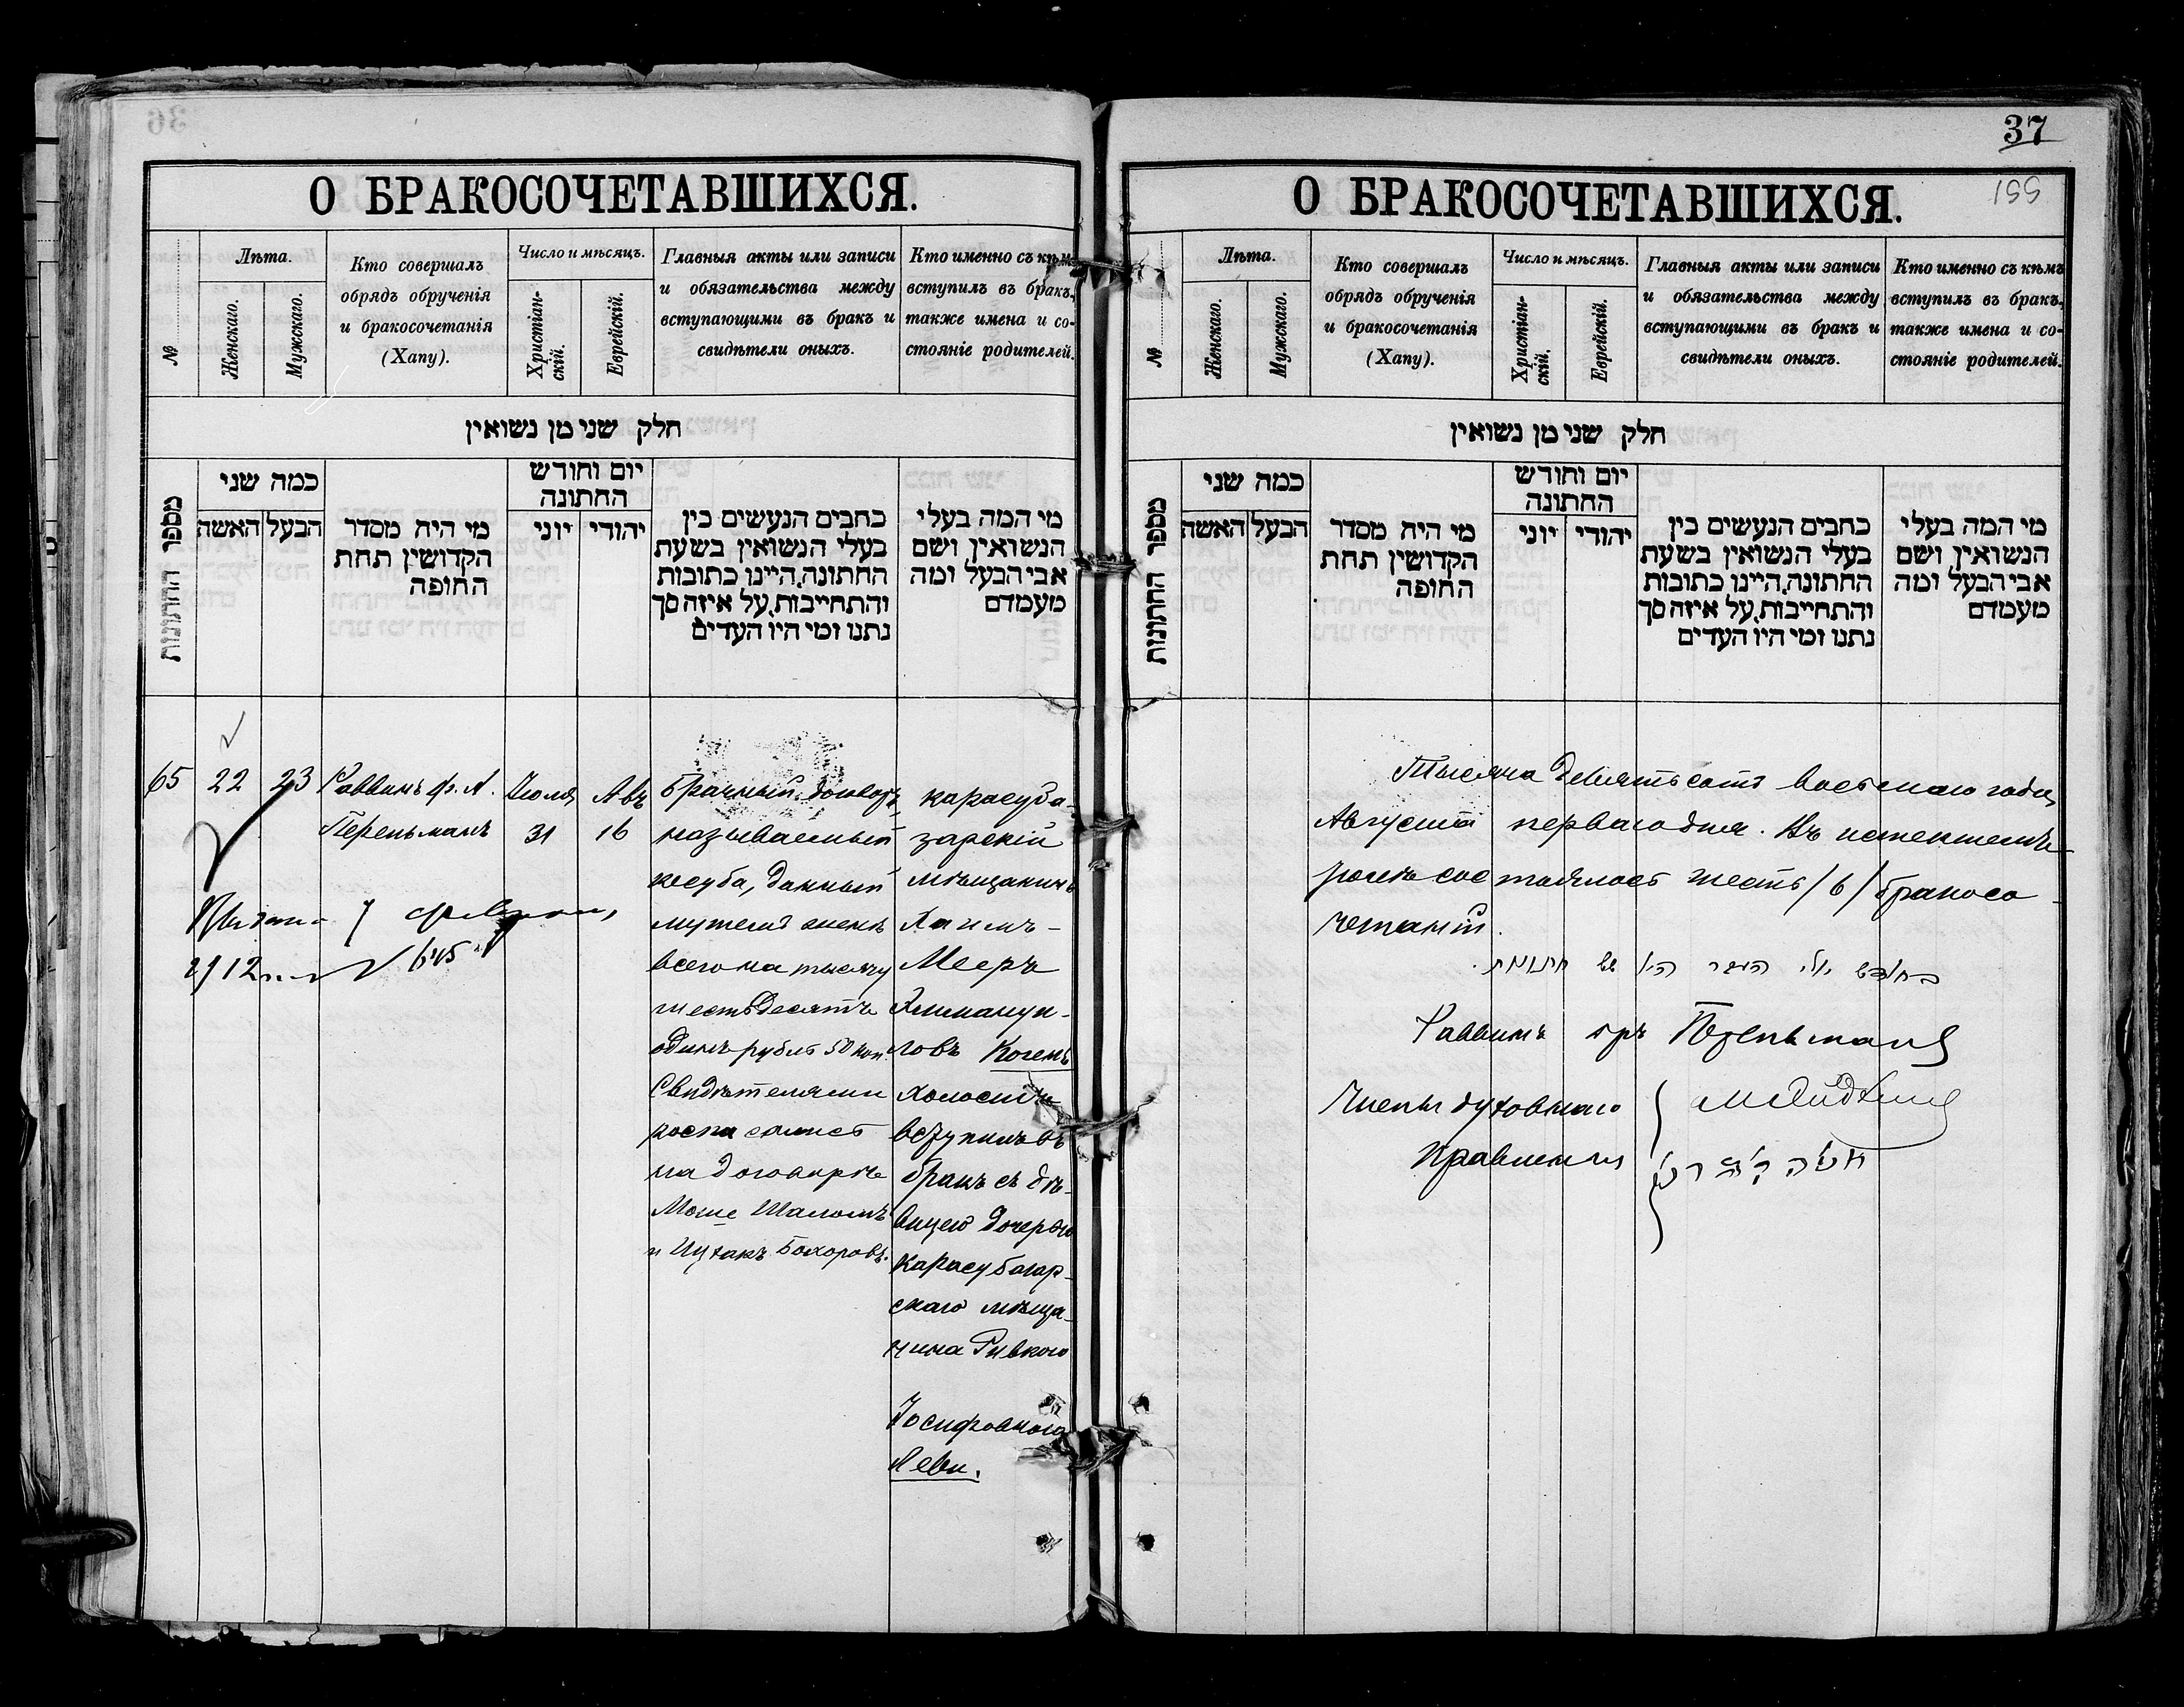 36
О БРАКОСОЧЕТАВШИХСЯ.
№
Лѣта.
Женскаго.
Мужскаго.
Кто совершалъ
обрядъ обрученія
и бракосочетанія
(Хапу).
Число и мѣсяцъ.
Христіан-
скій.
Еврейскій.
Главныя акты или записи
и обязательства между
вступающими въ бракъ и
свидѣтели оныхъ.
Кто именно съ кѣмъ
вступилъ въ бракъ,
также имена и со-
стояніе родителей.
חלק שני מן נשואין
מספר החתונות
כמה שני
האשה
הבעל
מי היה מסדר
הקדושין תחת
החופה
יום וחודש
החתונה
יוני
יהודי
כתבים הנעשים בין
בעלי הנשואין בשעת
החתונה, היינו כתובות
והתחייבות, על איזה סך
נתנו ומי היו העדים
מי המה בעלי
הנשואין ושם
אבי הבעל ומה
מעמדם
65
22
23
Раввинъ Ф. А.
Перельманъ
Іюля
31
Авъ
16
Брачный договоръ
называемый
кесуба, данный
мужемъ женѣ
всего на тысячу
шестьдесятъ
одинъ рубль 50 коп.
Свидѣтелями
росписались
на договорѣ
Моше Шаломъ
и Ицхакъ Бохоровъ.
карасуба-
зарскій
мѣщанинъ
Хаимъ-
Мееръ
Когенъ
холостъ
вступилъ въ
бракъ съ дѣ-
вицею дочерью
карасубазар-
скаго мѣща-
нина Ривкою
Іосифовною
Леви.
1912
37
155
О БРАКОСОЧЕТАВШИХСЯ.
№
Лѣта.
Женскаго.
Мужскаго.
Кто совершалъ
обрядъ обрученія
и бракосочетанія
(Хапу).
Число и мѣсяцъ.
Христіан-
скій.
Еврейскій.
Главныя акты или записи
и обязательства между
вступающими въ бракъ и
свидѣтели оныхъ.
Кто именно съ кѣмъ
вступилъ въ бракъ,
также имена и со-
стояніе родителей.
חלק שני מן נשואין
מספר החתונות
כמה שני
האשה
הבעל
מי היה מסדר
הקדושין תחת
החופה
יום וחודש
החתונה
יוני
יהודי
כתבים הנעשים בין
בעלי הנשואין בשעת
החתונה, היינו כתובות
והתחייבות, על איזה סך
נתנו ומי היו העדים
מי המה בעלי
הנשואין ושם
אבי הבעל ומה
מעמדם
Тысяча девятьсотъ восьмаго года,
Августа перваго дня. Въ истекшемъ
Іюлѣ состоялось шесть /6/ бракосо-
четаній.
Раввинъ Перельманъ
Члены духовнаго
Правленія